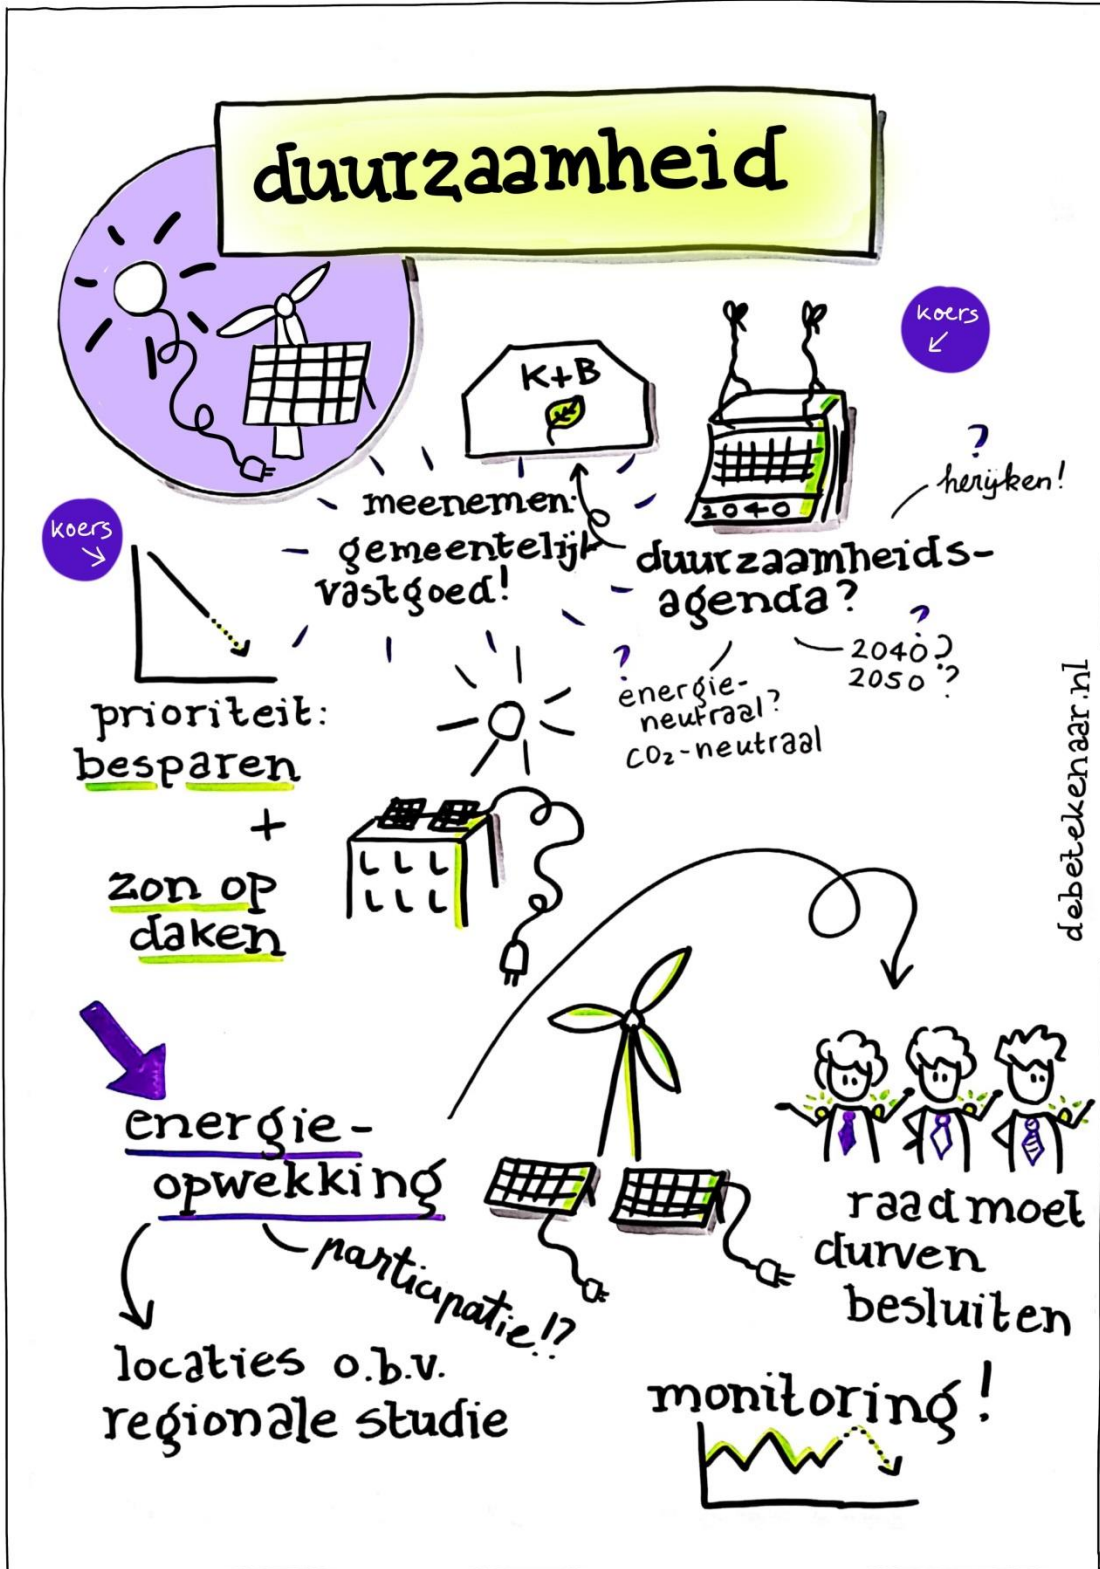 duurzaamheid
koers
K+B
2040
?
herijken!
koers
meenemen
gemeentelijk
vastgoed!
duurzaamheids-
agenda?
?
2040?
2050?
?
energie-
neutraal?
CO₂-neutraal
prioriteit:
besparen
+
zon op
daken
debetekenaar.nl
energie-
opwekking
participatie!?
raad moet
durven
besluiten
locaties o.b.v.
regionale studie
monitoring!